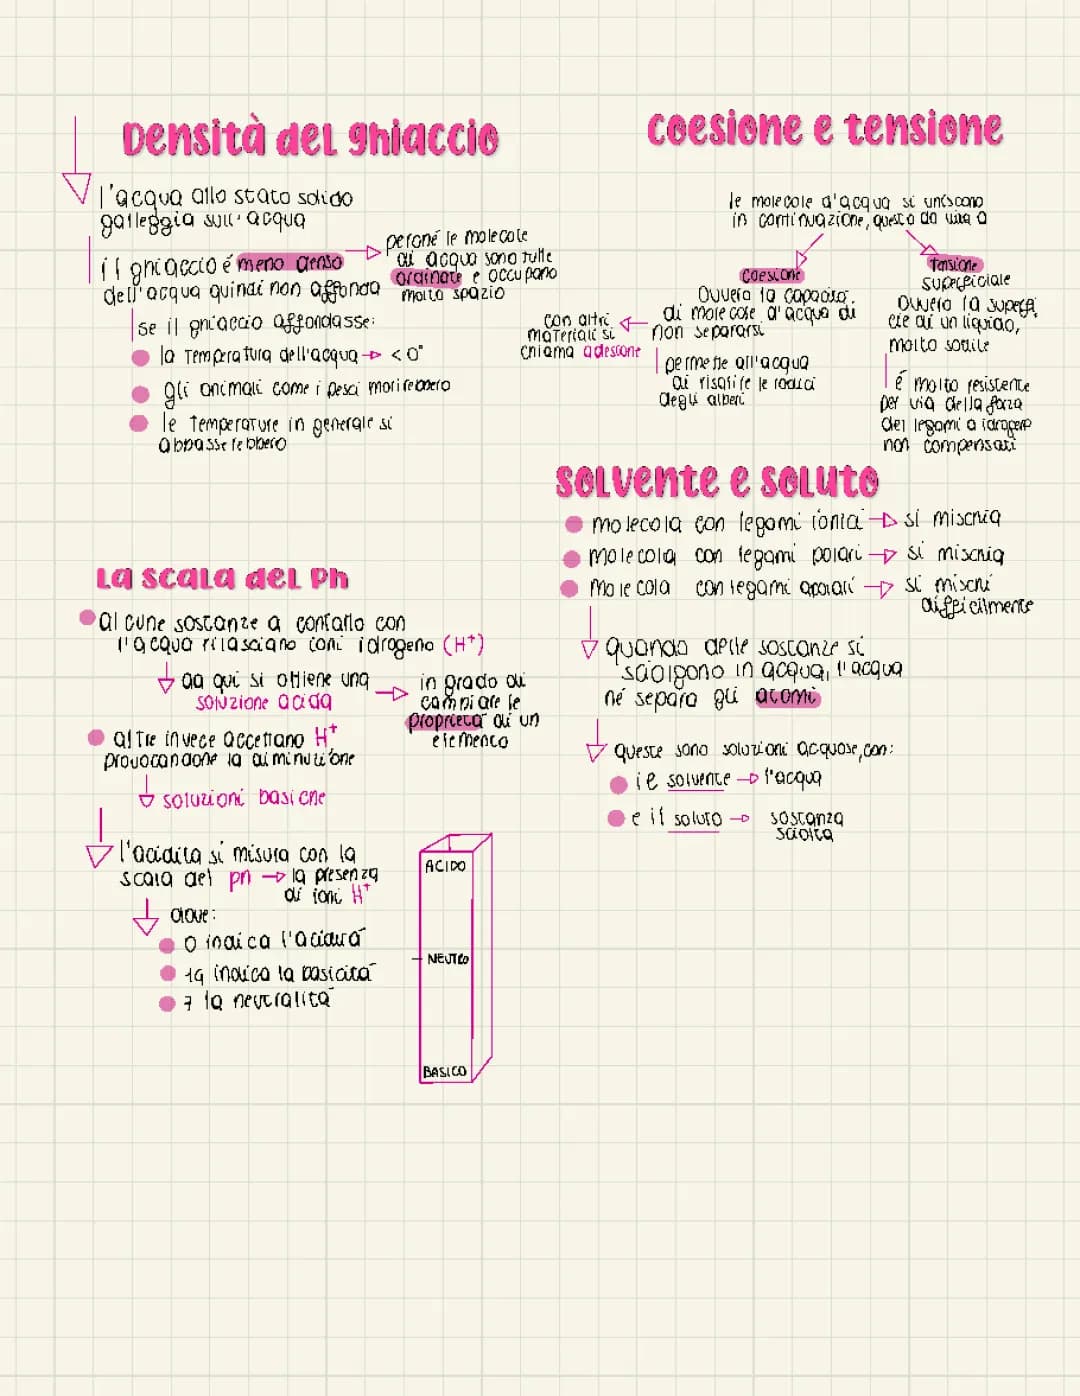 Densità del ghiaccio
l'acqua allo stato solido
galleggia sull'acqua
il ghiaccio é meno denso
dell'acqua quindi non affonda
perché le molecole
di acqua sono tutte
ordinate e occupano
molto spazio
se il ghiaccio affondasse:
la temperatura dell'acqua → <0°
gli animali come i pesci morirebbero
le temperature in generale si
abbasserebbero
Coesione e tensione
le molecole d'acqua si uniscono
in continuazione, questo da vita a
coesione
Ovvero la capacità
di molecole d'acqua di
non separarsi
con altri
materiali si
chiama adesione
permette all'acqua
di risalire le radici
degli alberi
Tensione
superficiale
Ovvero la superfi
cie di un liquido,
molto sottile
é molto resistente
per via della forza
dei legami a idrogeno
non compensati
Solvente e soluto
molecola con legami ionici → si mischia
molecola con legami polari → si mischia
molecola con legami apolari → si mischi
difficilmente
quando delle sostanze si
sciolgono in acqua, l'acqua
né separa gli atomi
queste sono soluzioni acquose, con:
il solvente → l'acqua
e il soluto → sostanza
sciolta
La scala del Ph
Alcune sostanze a contatto con
l'acqua rilasciano ioni idrogeno (H⁺)
da qui si ottiene una
soluzione acida
in grado di
cambiare le
proprietà di un
elemento
altre invece accettano H⁺
provocandone la diminuzione
soluzioni basiche
l'acidità si misura con la
scala del ph → la presenza
di ioni H⁺
dove:
0 indica l'acidità
14 indica la basicità
7 la neutralità
ACIDO
NEUTRO
BASICO